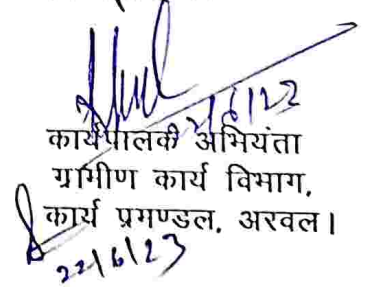 कार्यपालक अभियंता
ग्रामीण कार्य विभाग,
कार्य प्रमण्डल, अरवल।
22/6/23